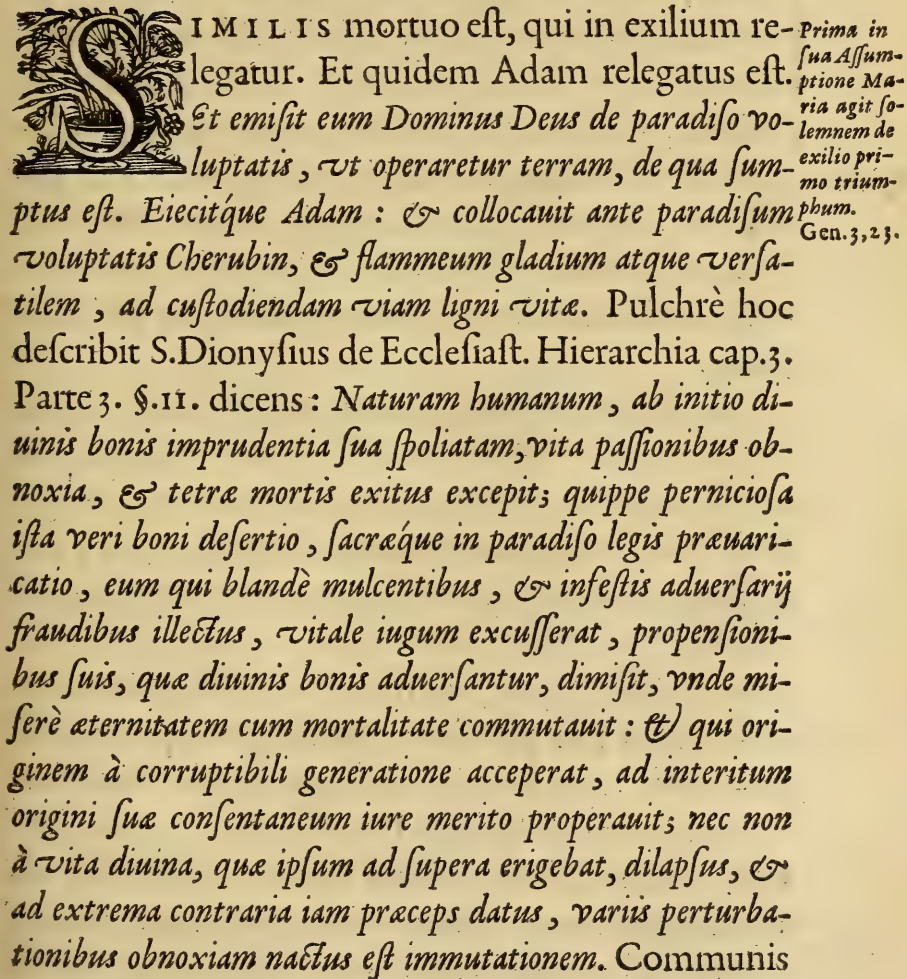 SIMILIS mortuo eſt, qui in exilium re-
legatur. Et quidem Adam relegatus eſt.
Et emiſit eum Dominus Deus de paradiſo vo-
luptatis, vt operaretur terram, de qua ſum-
ptus eſt. Eiecitq́ue Adam: & collocauit ante paradiſum
voluptatis Cherubin, & flammeum gladium atque verſa-
tilem, ad cuſtodiendam viam ligni vitæ. Pulchrè hoc
deſcribit S.Dionyſius de Eccleſiaſt. Hierarchia cap.3.
Parte 3. §.11. dicens: Naturam humanum, ab initio di-
uinis bonis imprudentia ſua ſpoliatam, vita paſſionibus ob-
noxia, & tetræ mortis exitus excepit; quippe pernicioſa
iſta veri boni deſertio, ſacræq́ue in paradiſo legis præuari-
catio, eum qui blandè mulcentibus, & infeſtis aduerſarij
fraudibus illectus, vitale iugum excuſſerat, propenſioni-
bus ſuis, quæ diuinis bonis aduerſantur, dimiſit, vnde mi-
ſerè æternitatem cum mortalitate commutauit: & qui ori-
ginem à corruptibili generatione acceperat, ad interitum
origini ſuæ conſentaneum iure merito properauit; nec non
à vita diuina, quæ ipſum ad ſupera erigebat, dilapſus, &
ad extrema contraria iam præceps datus, variis perturba-
tionibus obnoxiam nactus eſt immutationem. Communis
Prima in
ſua Aſſum-
ptione Ma-
ria agit ſo-
lemnem de
exilio pri-
mo trium-
phum.
Gen.3,23.